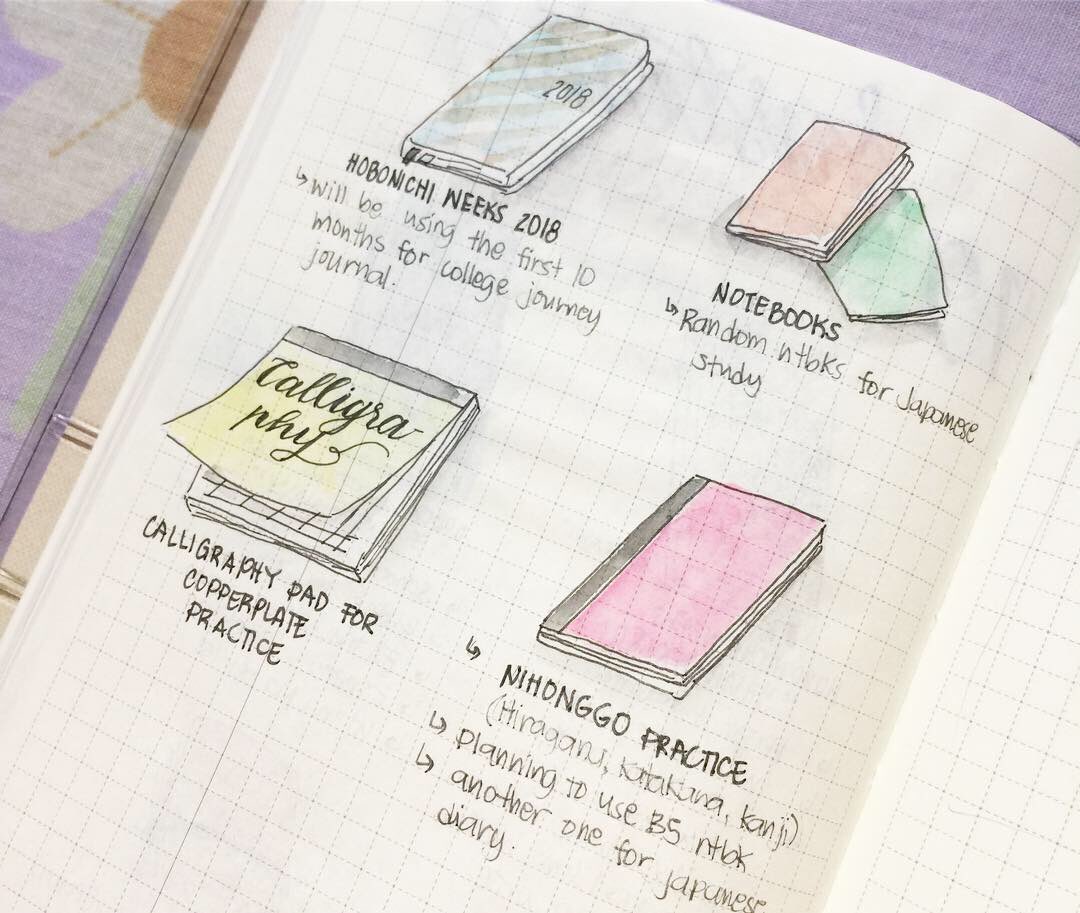 2018
HOBONICHI WEEKS 2018
↳ Will be using the first 10
months for college journey
journal.
NOTEBOOKS
↳ Random ntbks for Japanese
study
Calligra-
phy
CALLIGRAPHY PAD FOR
COPPERPLATE
PRACTICE
↳
NIHONGGO PRACTICE
(Hiragana, katakana, kanji)
↳ Planning to use B5 ntbk
↳ another one for japanese
diary.